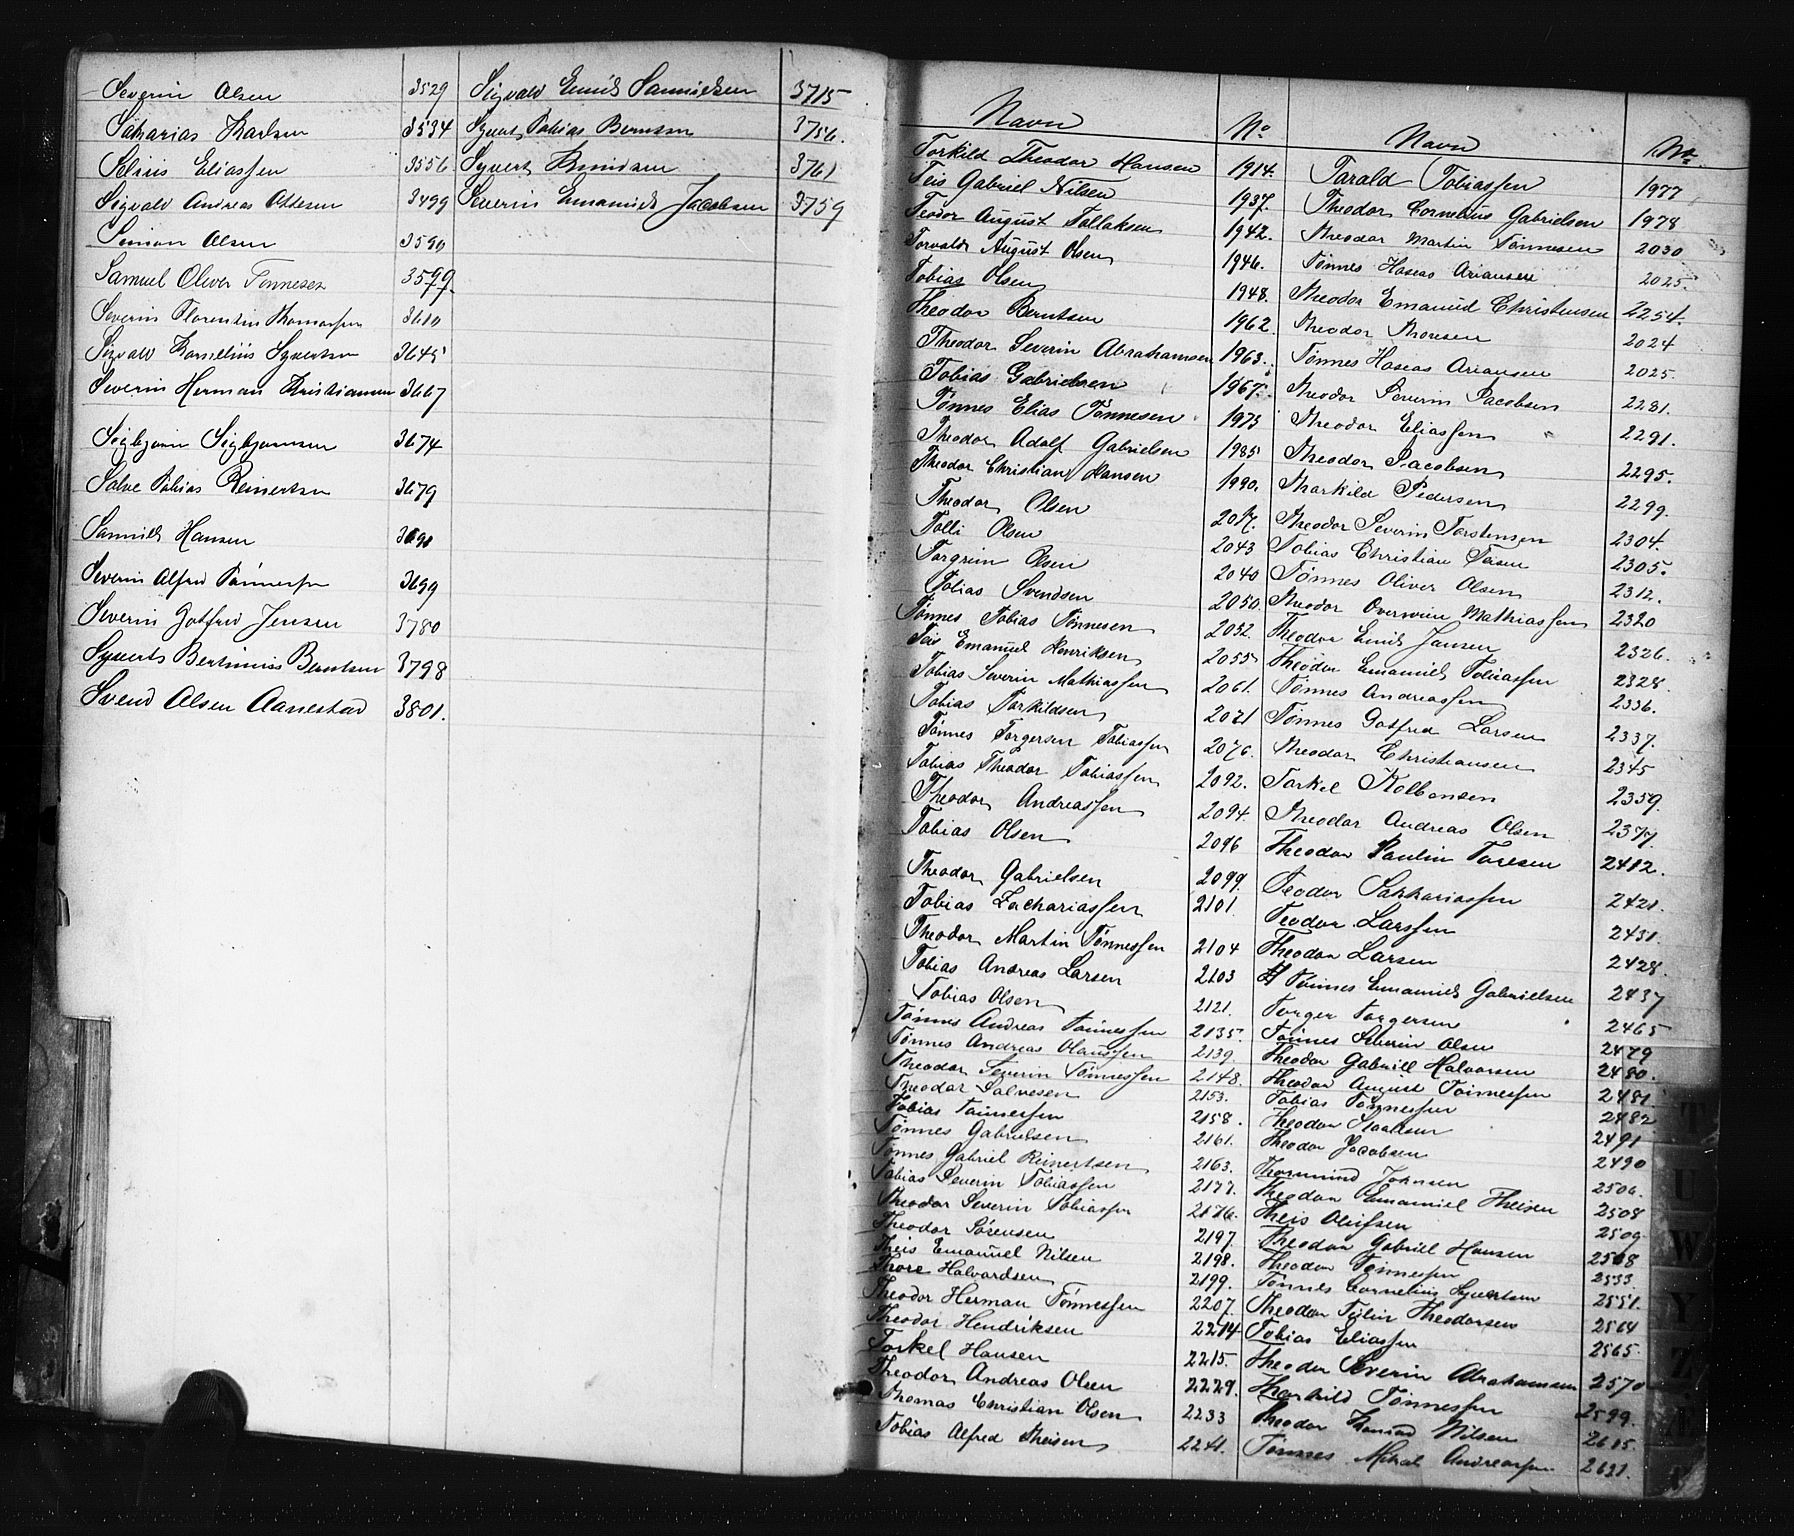 Severin Olsen 3529
Sakarias Karlsen 3534
Selius Eliassen 3556
Sigvald Andreas Ottesen 3499
Simon Olsen 3590
Samuel Oliver Tønnesen 3599.
Severin Florentin Thomassen 3610
Sigvald Kornelius Syvertsen 3645
Severin Herman Kristiansen 3667
Sigbjørn Sigbjørnsen 3674
Salve Tobias Reinertsen 3679
Samuel Hansen 3690
Severin Alfred Tønnessen 3699
Severin Gotfred Jensen 3780
Syverts Bertinius Berntsen 3798
Svend Olsen Aanestad 3801.
Sigvald Emil Samuelsen 3715
Syvert Tobias Berntsen 3756.
Syvert Knudsen 3761
Severin Emanuel Jacobsen 3759
Navn No
Torkild Theodor Hansen 1914.
Teis Gabriel Nilsen 1937.
Teodor August Tallaksen 1942.
Torvald August Olsen 1946.
Tobias Olsen 1948.
Theodor Berntsen 1962.
Theodor Severin Abrahamsen 1963.
Tobias Gabrielsen 1967.
Tønnes Elias Tønnesen 1973
Theodor Adolf Gabrielsen 1985
Theodor Christian Hansen 1990.
Theodor Olsen 2017.
Tolli Olsen 2043
Torgrim Olsen 2040
Tobias Svendsen 2050.
Tønnes Tobias Tønnesen 2052.
Teis Emanuel Henriksen 2055
Tobias Severin Mathiassen 2061.
Tobias Torkildsen 2071
Tønnes Torgersen Tobiassen 2076.
Tobias Theodor Tobiassen 2092.
Theodor Andreassen 2094.
Tobias Olsen 2096
Theodor Gabrielsen 2099.
Tobias Zachariassen 2101.
Theodor Martin Tønnessen 2104
Tobias Andreas Larsen 2103
Tobias Olsen 2121.
Tønnes Andreas Tønnessen 2135.
Tønnes Andreas Olaussen 2139.
Theodor Severin Tønnessen 2148.
Theodor Salvesen 2153.
Tobias Tønnessen 2158.
Tønnes Gabrielsen 2161.
Tønnes Gabriel Reinertsen 2163.
Tobias Severin Tobiassen 2177.
Theodor Severin Tobiassen 2176.
Theodor Sørensen 2197.
Theis Emanuel Nilsen 2198.
Thore Halvardsen 2199.
Theodor Herman Tønnessen 2207.
Theodor Hendriksen 2214
Torkel Hansen 2215.
Theodor Andreas Olsen 2229.
Thomas Christian Olsen 2233
Tobias Alfred Theisen 2241.
Navn No
Tarald Tobiassen 1977
Theodor Cornelius Gabrielsen 1978
Theodor Martin Tønnesen 2030
Tønnes Hoseas Ariansen 2025.
Theodor Emanuel Christensen 2254.
Theodor Thoresen 2024
Tønnes Hoseas Ariansen 2025.
Theodor Severin Jacobsen 2281.
Theodor Eliassen 2291.
Theodor Jacobsen 2295.
Tharkild Pedersen 2299.
Theodor Severin Torstensen 2304.
Tobias Christian 2305.
Tønnes Oliver Olsen 2312.
Theodor Overwien Mathiassen 2320
Theodor Emil Jansen 2326.
Theodor Emanuel Tobiassen 2328
Tønnes Andreassen 2336.
Tønnes Gotfred Larsen 2337.
Theodor Christiansen 2345
Torkel Kolbensen 2359.
Theodor Andreas Olsen 2377
Theodor Paulin Toresen 2412.
Teodor Sakkariassen 2421.
Teodor Larssen 2431.
Theodor Larsen 2428.
Tønnes Emanuel Gabrielsen 2437
Torger Torgersen 2465
Tønnes Severin Olsen 2479
Theodor Gabriel Halvorsen 2480.
Theodor August Tønnessen 2481.
Tobias Tønnessen 2482
Theodor 2491
Theodor Jacobsen 2490
Thormund Johnsen 2506.
Theodor Emanuel Theisen 2508
Theis Olufsen 2509
Theodor Gabriel Hansen 2518
Theodor Tønnessen 2533
Tønnes Cornelius Syvertsen 2551.
Theodor Theodorsen 2564
Tobias Eliassen 2565.
Theodor Severin Abrahamsen 2570
Tharkild Tønnessen 2599.
Theodor Konrad Nilsen 2615.
Tønnes Mikal Andreassen 2621.
T
U
W
Y
Z